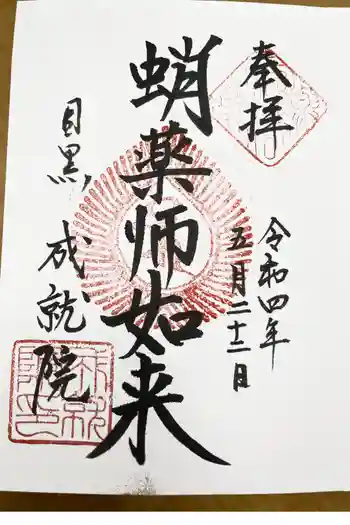 奉拝
令和四年
五月二十二日
蛸薬师如来
目黒 成就院